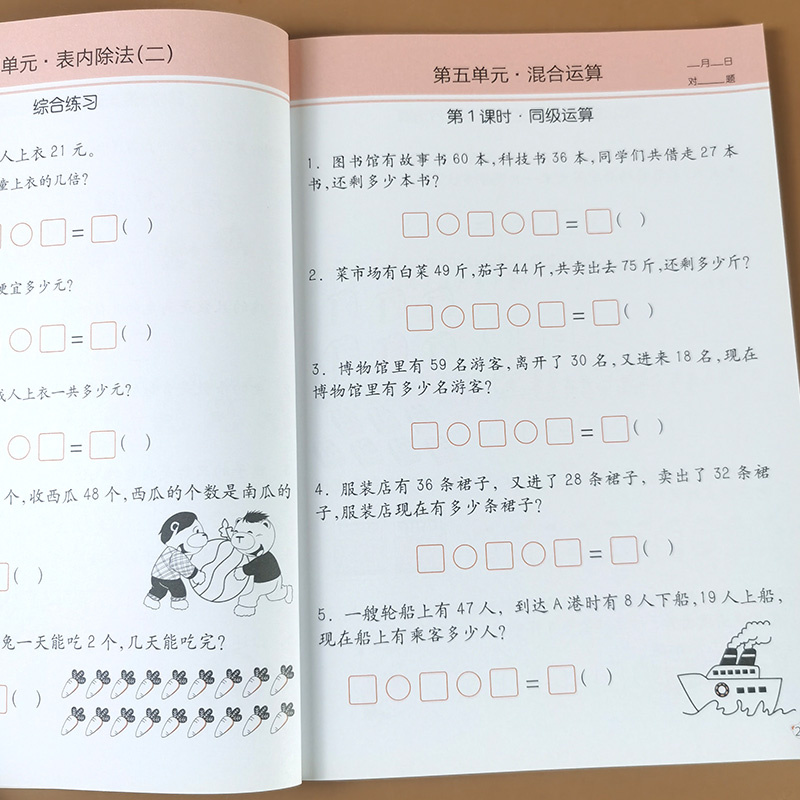 单元·表内除法(二)
综合练习
人上衣21元。
童上衣的几倍?
○□=□( )
便宜多少元?
○□=□( )
成人上衣一共多少元?
○□=□( )
个,收西瓜48个,西瓜的个数是南瓜的
( )
兔一天能吃2个,几天能吃完?
( )
第五单元·混合运算
__月__日
对____题
第1课时·同级运算
1. 图书馆有故事书60本,科技书36本,同学们共借走27本
书,还剩多少本书?
□○□○□=□( )
2. 菜市场有白菜49斤,茄子44斤,共卖出去75斤,还剩多少斤?
□○□○□=□( )
3. 博物馆里有59名游客,离开了30名,又进来18名,现在
博物馆里有多少名游客?
□○□○□=□( )
4. 服装店有36条裙子,又进了28条裙子,卖出了32条裙
子,服装店现在有多少条裙子?
□○□○□=□( )
5. 一艘轮船上有47人,到达A港时有8人下船,19人上船,
现在船上有乘客多少人?
□○□○□=□( )